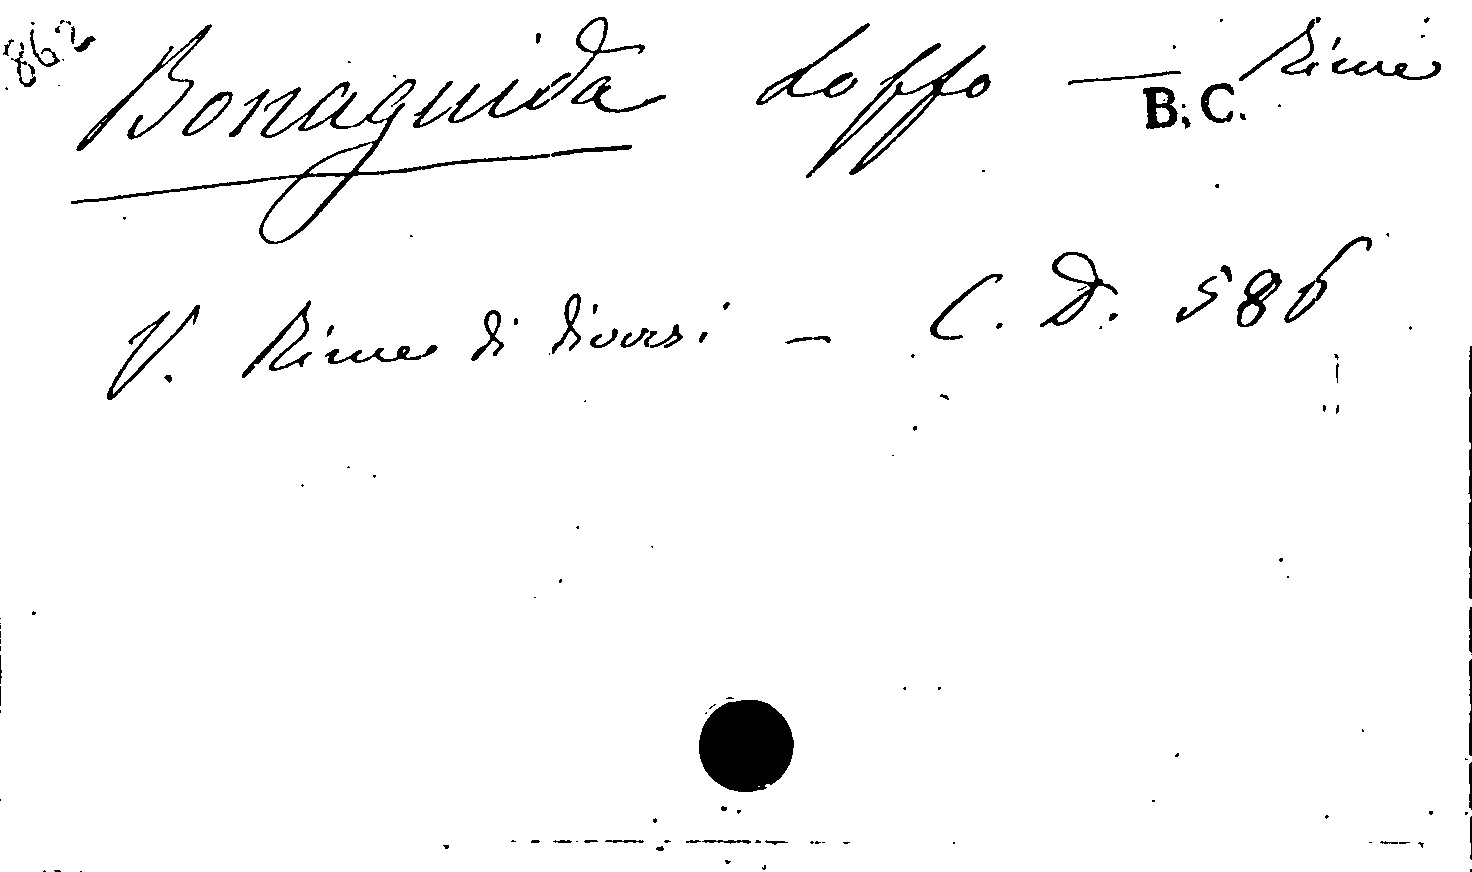 862
Bonaguida Loffo — Rime
B. C.
V. Rime di diversi — C. D. 586